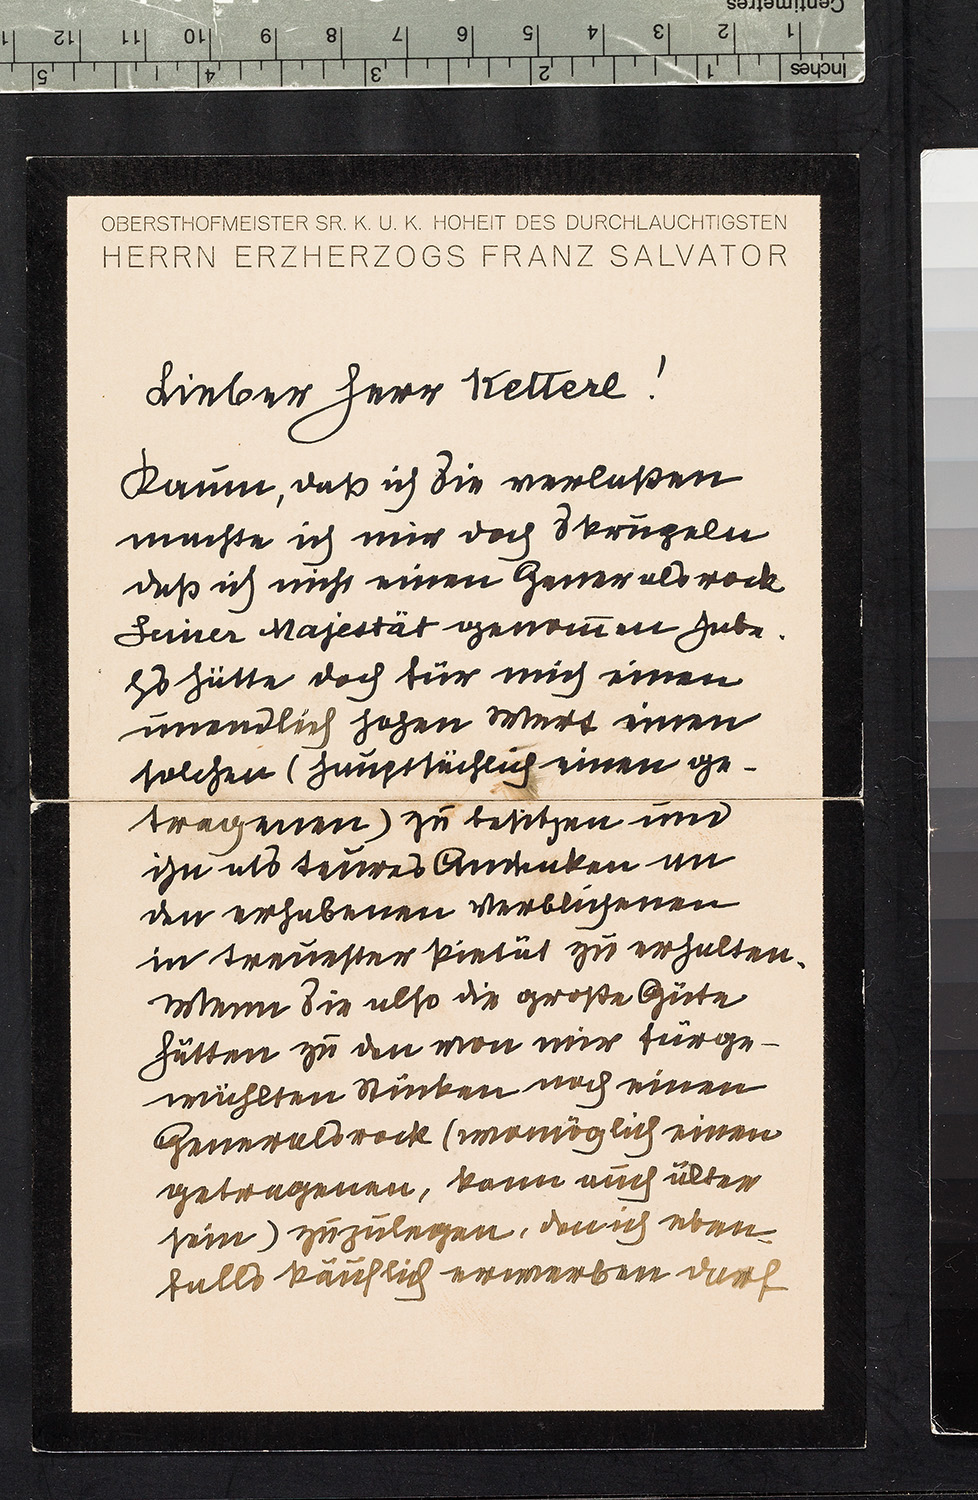 Centimetres
1 2 3 4 5 6 7 8 9 10 11 12
Inches 1 2 3 4 5
OBERSTHOFMEISTER SR. K. U. K. HOHEIT DES DURCHLAUCHTIGSTEN
HERRN ERZHERZOGS FRANZ SALVATOR
Lieber Herr Ketterl!
Kaum, daß ich Sie verlaßen
machte ich mir doch Skrupeln
daß ich nicht einen Generalsrock
Seiner Majestät genom̅en habe.
Es hätte doch für mich einen
unendlich hohen Wert einen
solchen (hauptsächlich einen ge-
tragenen) zu besitzen und
ihn als teures Andenken an
den erhabenen Verblichenen
in treuester Pietät zu erhalten.
Wenn Sie also die große Güte
hätten zu den von mir fürge-
wählten Stücken noch einen
Generalsrock (womöglich einen
getragenen, kann auch älter
sein) zuzulegen, den ich eben-
falls käuflich erwerben darf